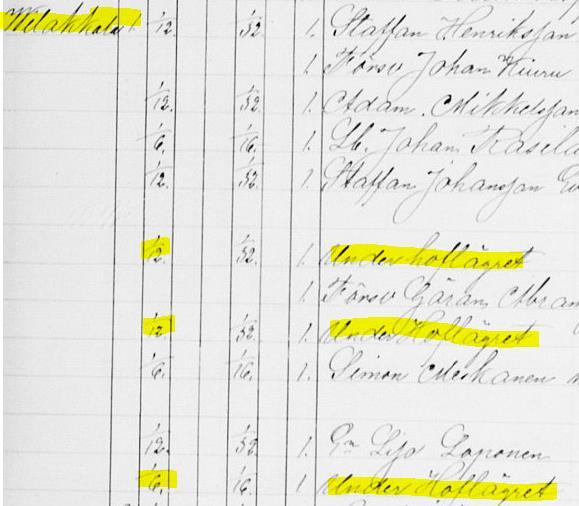 Wilakkala 1. 1/12. 1/32. 1. Staffan Henriksson
1. Försv Johan Kiuru
1/12. 1/32. 1. Adam. Mikkelsson
1/6. 1/16. 1. Lb. Johan
1/12. 1/32. 1. Staffan Johansson
1/12. 1/32. 1. Under hoflägret
1. Försv Göran Abram
1/12. 1/32. 1. Under Hoflägret
1/6. 1/16. 1. Simon Meskanen
1/12. 1/32. 1. Lijo Loponen
1/6. 1/16. 1. Under Hoflägret